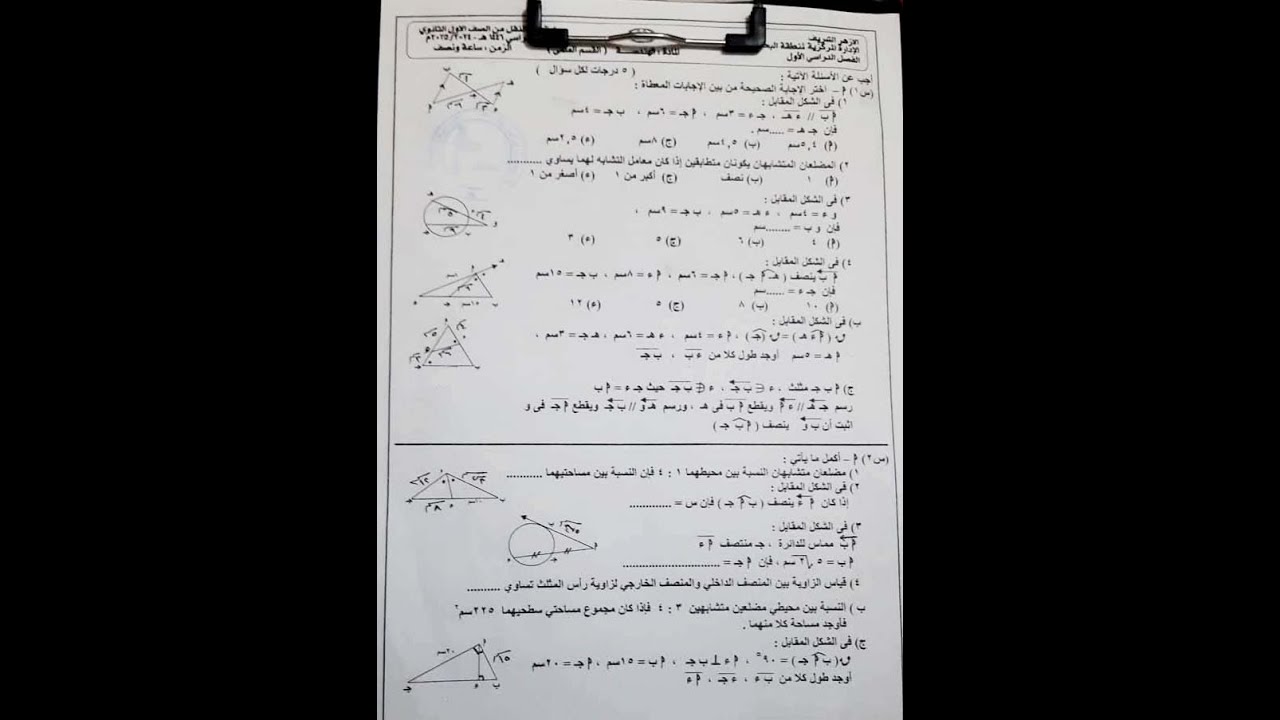 الازهر الشريف
الإدارة المركزية لمنطقة
الفصل الدراسي الأول
النقل من الصف الأول الثانوي
١٤٤٦ هـ - ٢٠٢٤ / ٢٠٢٥م
مادة : الهندسة ( القسم العلمي )
الزمن : ساعة ونصف
أجب عن الأسئلة الآتية : ( ٥ درجات لكل سؤال )
(س١) م - اختر الإجابة الصحيحة من بين الإجابات المعطاة :
١) في الشكل المقابل :
م ب // ء هـ ، جـ ء = ٣سم ، م جـ = ٦سم ، ب جـ = ٤سم
فإن جـ هـ = .....سم .
(م) ٥,٤سم (ب) ٤,٥سم (ج) ٨سم (ء) ٢,٥سم
٢) المضلعان المتشابهان يكونان متطابقين إذا كان معامل التشابه لهما يساوي ..........
(م) ١ (ب) نصف (ج) أكبر من ١ (ء) أصغر من ١
٣) في الشكل المقابل :
و ء = ٤سم ، ء هـ = ٥سم ، ب جـ = ٩سم ،
فإن و ب = ........سم
(م) ٤ (ب) ٦ (ج) ٥ (ء) ٣
٤) في الشكل المقابل :
م ب ينصف ( هـ م جـ ) ، م جـ = ٦سم ، م ء = ٨سم ، ب جـ = ١٥سم
فإن جـ ء = ......سم
(م) ١٠ (ب) ٨ (ج) ٥ (ء) ١٢
ب) في الشكل المقابل :
ق ( م ء هـ ) = ق ( جـ ) ، م ء = ٤سم ، ء هـ = ٦سم ، هـ جـ = ٣سم ،
م هـ = ٥سم أوجد طول كلا من ء ب ، ب جـ
ج) م ب جـ مثلث ، ء ∈ ب جـ ، ء ∉ ب جـ حيث جـ ء = م ب
رسم جـ هـ // ء م ويقطع م ب في هـ ، ورسم هـ و // ب جـ ويقطع م جـ في و
اثبت أن ب و ينصف ( م ب جـ )
(س٢) م - أكمل ما يأتي :
١) مضلعان متشابهان النسبة بين محيطهما ١ : ٤ فإن النسبة بين مساحتيهما ..........
٢) في الشكل المقابل :
إذا كان م ء ينصف ( ب م جـ ) فإن س = .............
٣) في الشكل المقابل :
م ب مماس للدائرة ، جـ منتصف م ء
م ب = ٥ √٢ سم ، فإن م جـ = ............................
٤) قياس الزاوية بين المنصف الداخلي والمنصف الخارجي لزاوية رأس المثلث تساوي ..........
ب ) النسبة بين محيطي مضلعين متشابهين ٣ : ٤ فإذا كان مجموع مساحتي سطحيهما ٢٢٥سم٢
فأوجد مساحة كلا منهما .
ج) في الشكل المقابل :
ق ( ب م جـ ) = ٩٠° ، م ء ⊥ ب جـ ، م ب = ١٥سم ، م جـ = ٢٠سم
أوجد طول كلا من ب ء ، ء جـ ، م ء